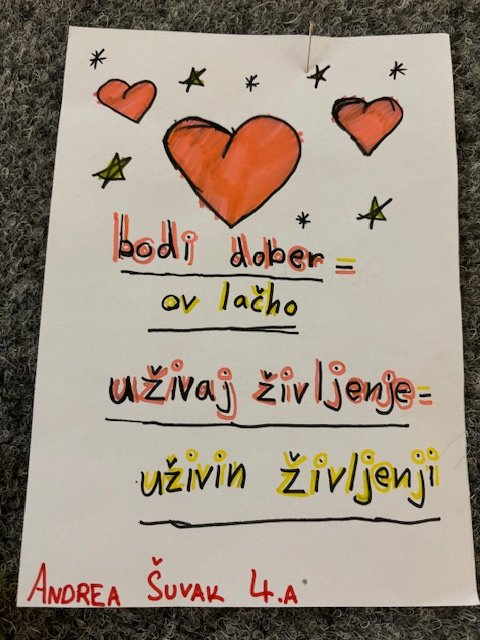 bodi dober =
ov lačho
uživaj življenje=
uživin življenji
ANDREA ŠUVAK 4.A